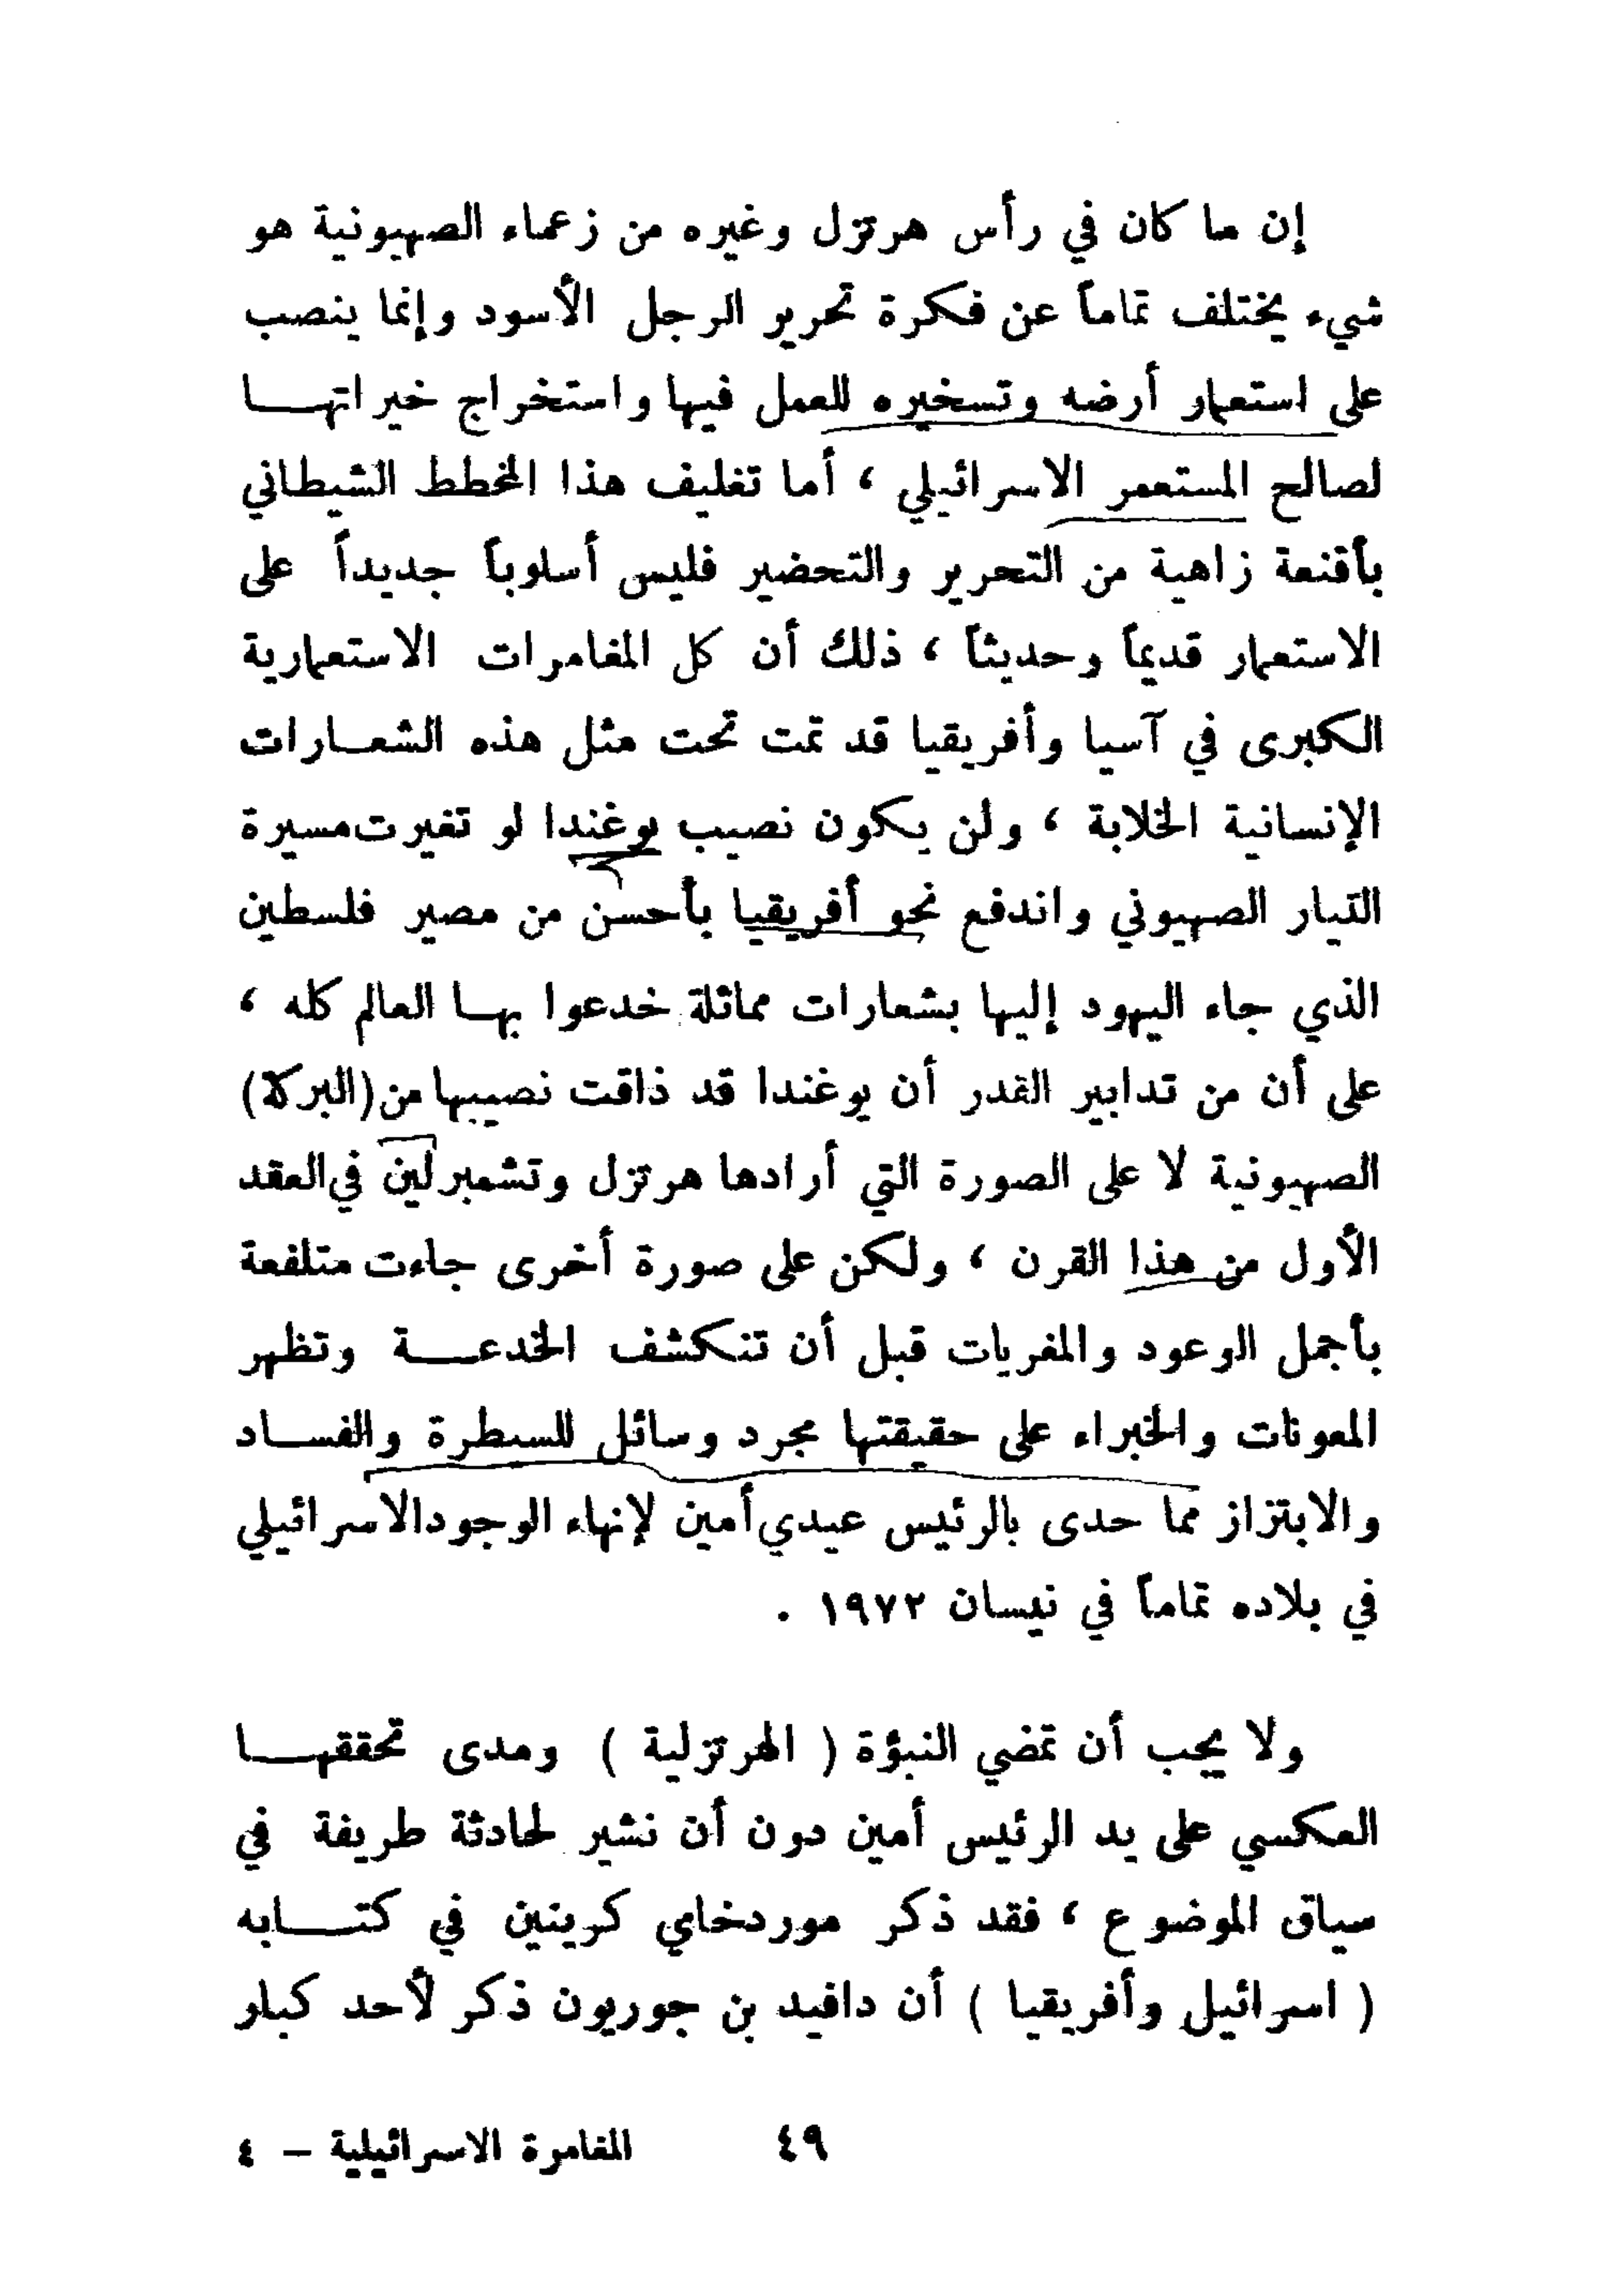 إن ما كان في رأس هرتزل وغيره من زعماء الصهيونية هو
شيء يختلف تماماً عن فكرة تحرير الرجل الأسود وإنما ينصب
على استعمار أرضه وتسخيره للعمل فيها واستخراج خيراتهـــا
لصالح المستعمر الاسرائيلي ، أما تغليف هذا المخطط الشيطاني
بأقنعة زاهية من التحرير والتحضير فليس أسلوباً جديداً على
الاستعمار قديماً وحديثاً ، ذلك أن كل المغامرات الاستعمارية
الكبرى في آسيا وأفريقيا قد تمت تحت مثل هذه الشعــارات
الإنسانية الخلابة ، ولن يكون نصيب يوغندا لو تغيرت مسيرة
التيار الصهيوني واندفع نحو أفريقيا بأحسن من مصير فلسطين
الذي جاء اليهود إليها بشعارات مماثلة خدعوا بهــا العالم كله ،
على أن من تدابير القدر أن يوغندا قد ذاقت نصيبها من (البركة)
الصهيونية لا على الصورة التي أرادها هرتزل وتشمبرلين في العقد
الأول من هذا القرن ، ولكن على صورة أخرى جاءت متلفعة
بأجمل الوعود والمغريات قبل أن تنكشف الخدعــــة وتظهر
المعونات والخبراء على حقيقتها مجرد وسائل للسيطرة والفســاد
والابتزاز مما حدى بالرئيس عيدي أمين لإنهاء الوجود الاسرائيلي
في بلاده تماماً في نيسان ١٩٧٢ .
ولا يجب أن تمضي النبؤة ( الهرتزلية ) ومدى تحققهـــا
العكسي على يد الرئيس أمين دون أن نشير لحادثة طريفة في
سياق الموضوع ، فقد ذكر موردخاي كرينين في كتـــابه
( اسرائيل وأفريقيا ) أن دافيد بن جوريون ذكر لأحد كبار
٤٩ المغامرة الاسرائيلية – ٤